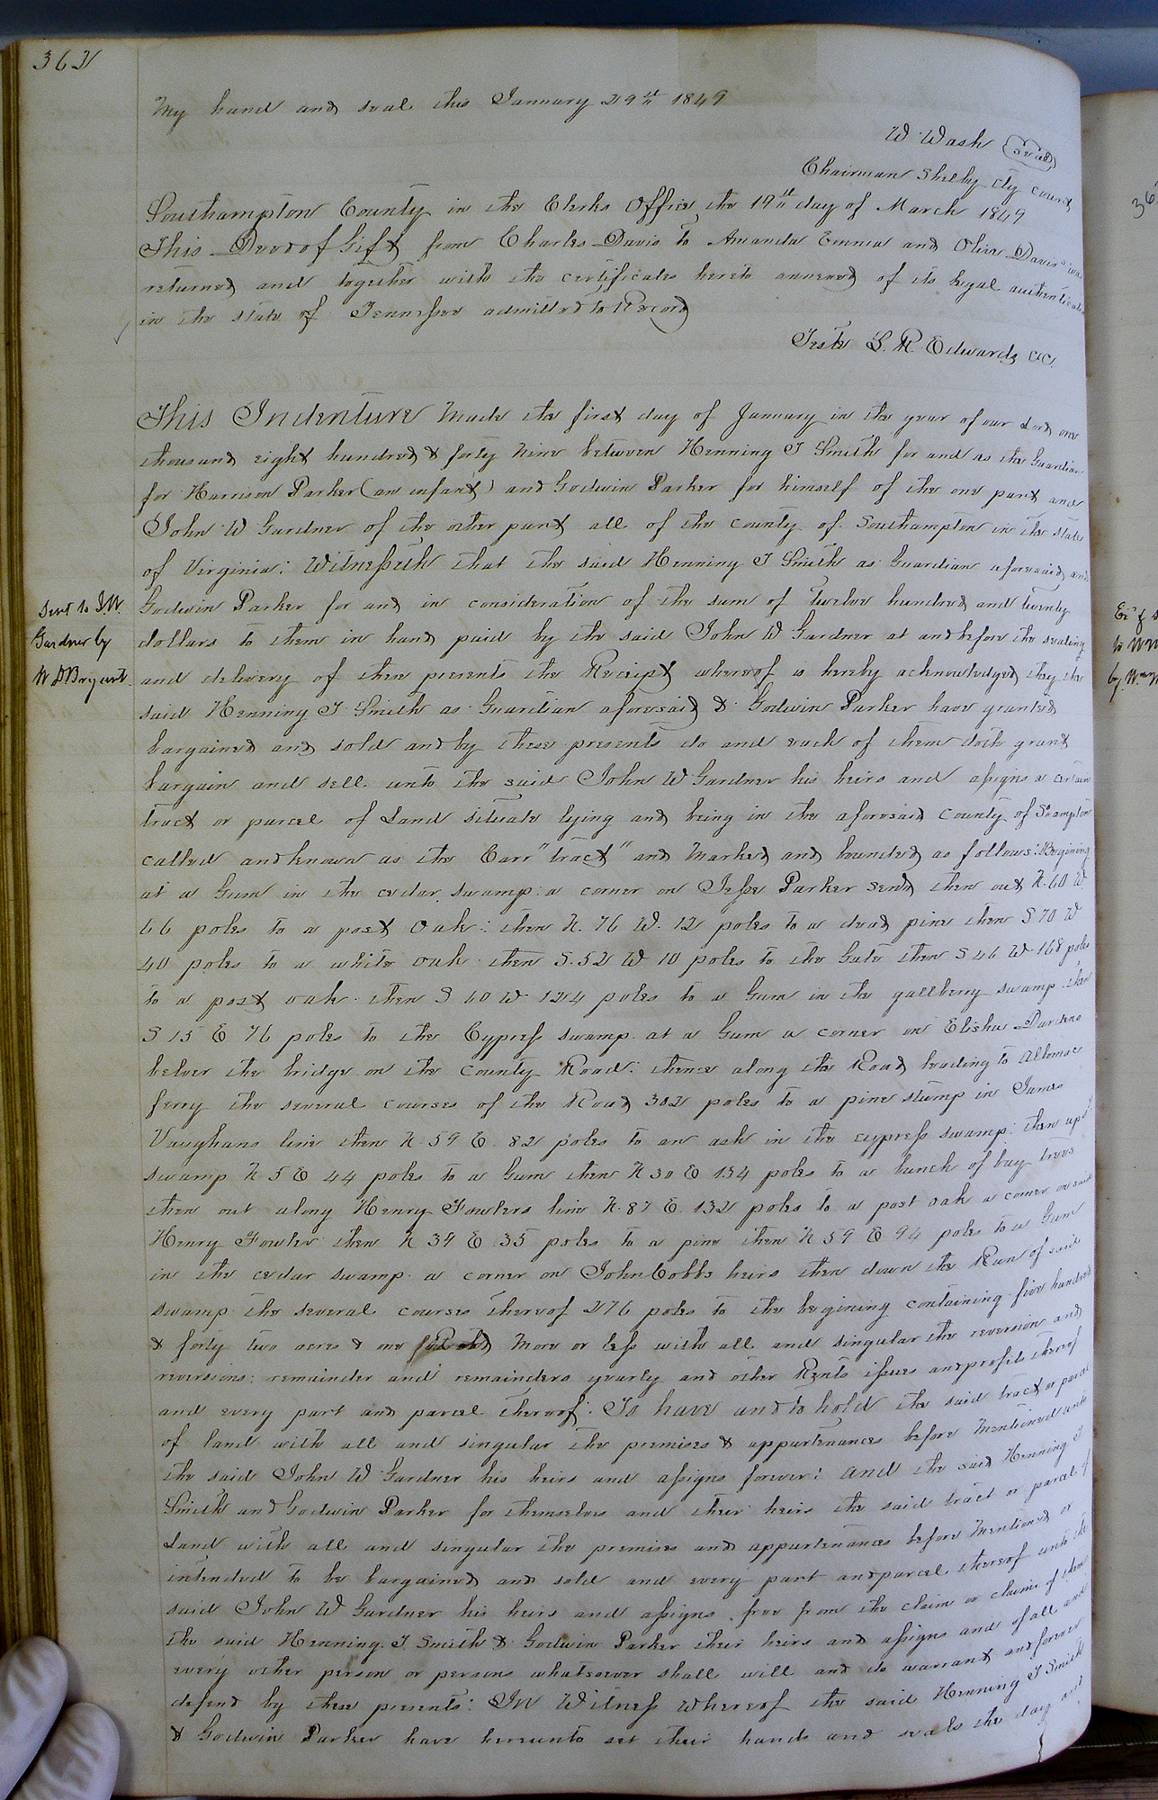 362
My hand and seal this January 29th 1849
W. Wash (seal)
Chairman Shelby Cty Court
Southampton County in the Clerks Office, the 19th day of March 1849
This Deed of Gift from Charles Davis to Amanda Emma and Olivia Davis was
returned and together with the certificates hereto annexed of its legal authenticate
in the state of Tennessee admitted to Record
Teste L. R. Edwards CC.
This Indenture Made the first day of January in the year of our Lord one
thousand eight hundred & forty Nine between Henning T Smith for and as the Guardian
for Harrison Parker (an infant) and Godwin Parker for himself of the one part and
John W Gardner of the other part all of the county of Southampton in the state
of Virginia: Witnesseth that the said Henning T Smith as Guardian aforesaid and
Godwin Parker for and in consideration of the sum of twelve hundred and twenty
dollars to them in hand paid by the said John W Gardner at and before the sealing
and delivery of these presents the Receipt whereof is hereby acknowledged, they the
said Henning T Smith as Guardian aforesaid & Godwin Parker have granted
bargained and sold and by these presents do and each of them doth grant
bargain and sell unto the said John W Gardner his heirs and assigns a certain
tract or parcel of Land situate lying and being in the aforesaid County of So'ampton
called and known as the Carr "tract" and Marked and bounded as follows: Begining
at a Gum in the cedar swamp a corner on Jesse Parker Send then out N. 60 W
66 poles to a post Oak: then N. 76 W. 12 poles to a dead pine then S 70 W
40 poles to a white oak then S. 52 W 10 poles to the Gate then S 46 W 168 poles
to a post oak then S 60 W 124 poles to a Gum in the gallberry swamp then
S 15 E 76 poles to the Cypress swamp at a Gum a corner on Elisha Dardens
below the bridge on the County Road: thence along the Road leading to
ferry the several courses of the Road 302 poles to a pine stump in James
Vaughans line then N 59 E. 82 poles to an ash in the cypress swamp: then up
swamp N 5 E 44 poles to a Gum then N 30 E 134 poles to a bunch of bay trees
then out along Henry Fowlers line N. 87 E 132 poles to a post oak a corner on said
Henry Fowler then N 39 E 35 poles to a pine then N 59 E 94 poles to a Gum
in the cedar swamp a corner on John Cobbs heirs then down the Run of said
swamp the several courses thereof 276 poles to the begining containing five hundred
& forty two acres & one More or less with all and singular the reversion and
reversions: remainder and remainders yearly and other Rents issues and profits thereof
and every part and parcel thereof: To have and to hold the said tract or parcel
of land with all and singular the premises & appurtenances before Mentioned unto
the said John W Gardner his heirs and assigns forever: and the said Henning T
Smith and Godwin Parker for themselves and their heirs the said tract or parcel of
Land with all and singular the premises and appurtenances before Mentioned or
intended to be bargained and sold and every part and parcel thereof unto the
said John W Gardner his heirs and assigns free from the claim or claims of them
the said Henning T Smith & Godwin Parker their heirs and assigns and of all and
every other person or persons whatsoever shall will and do warrant and forever
defend by these presents: In Witness Whereof the said Henning T Smith
& Godwin Parker have hereunto set their hands and seals the day and
Sent to J W.
Gardner by
W D Bryant